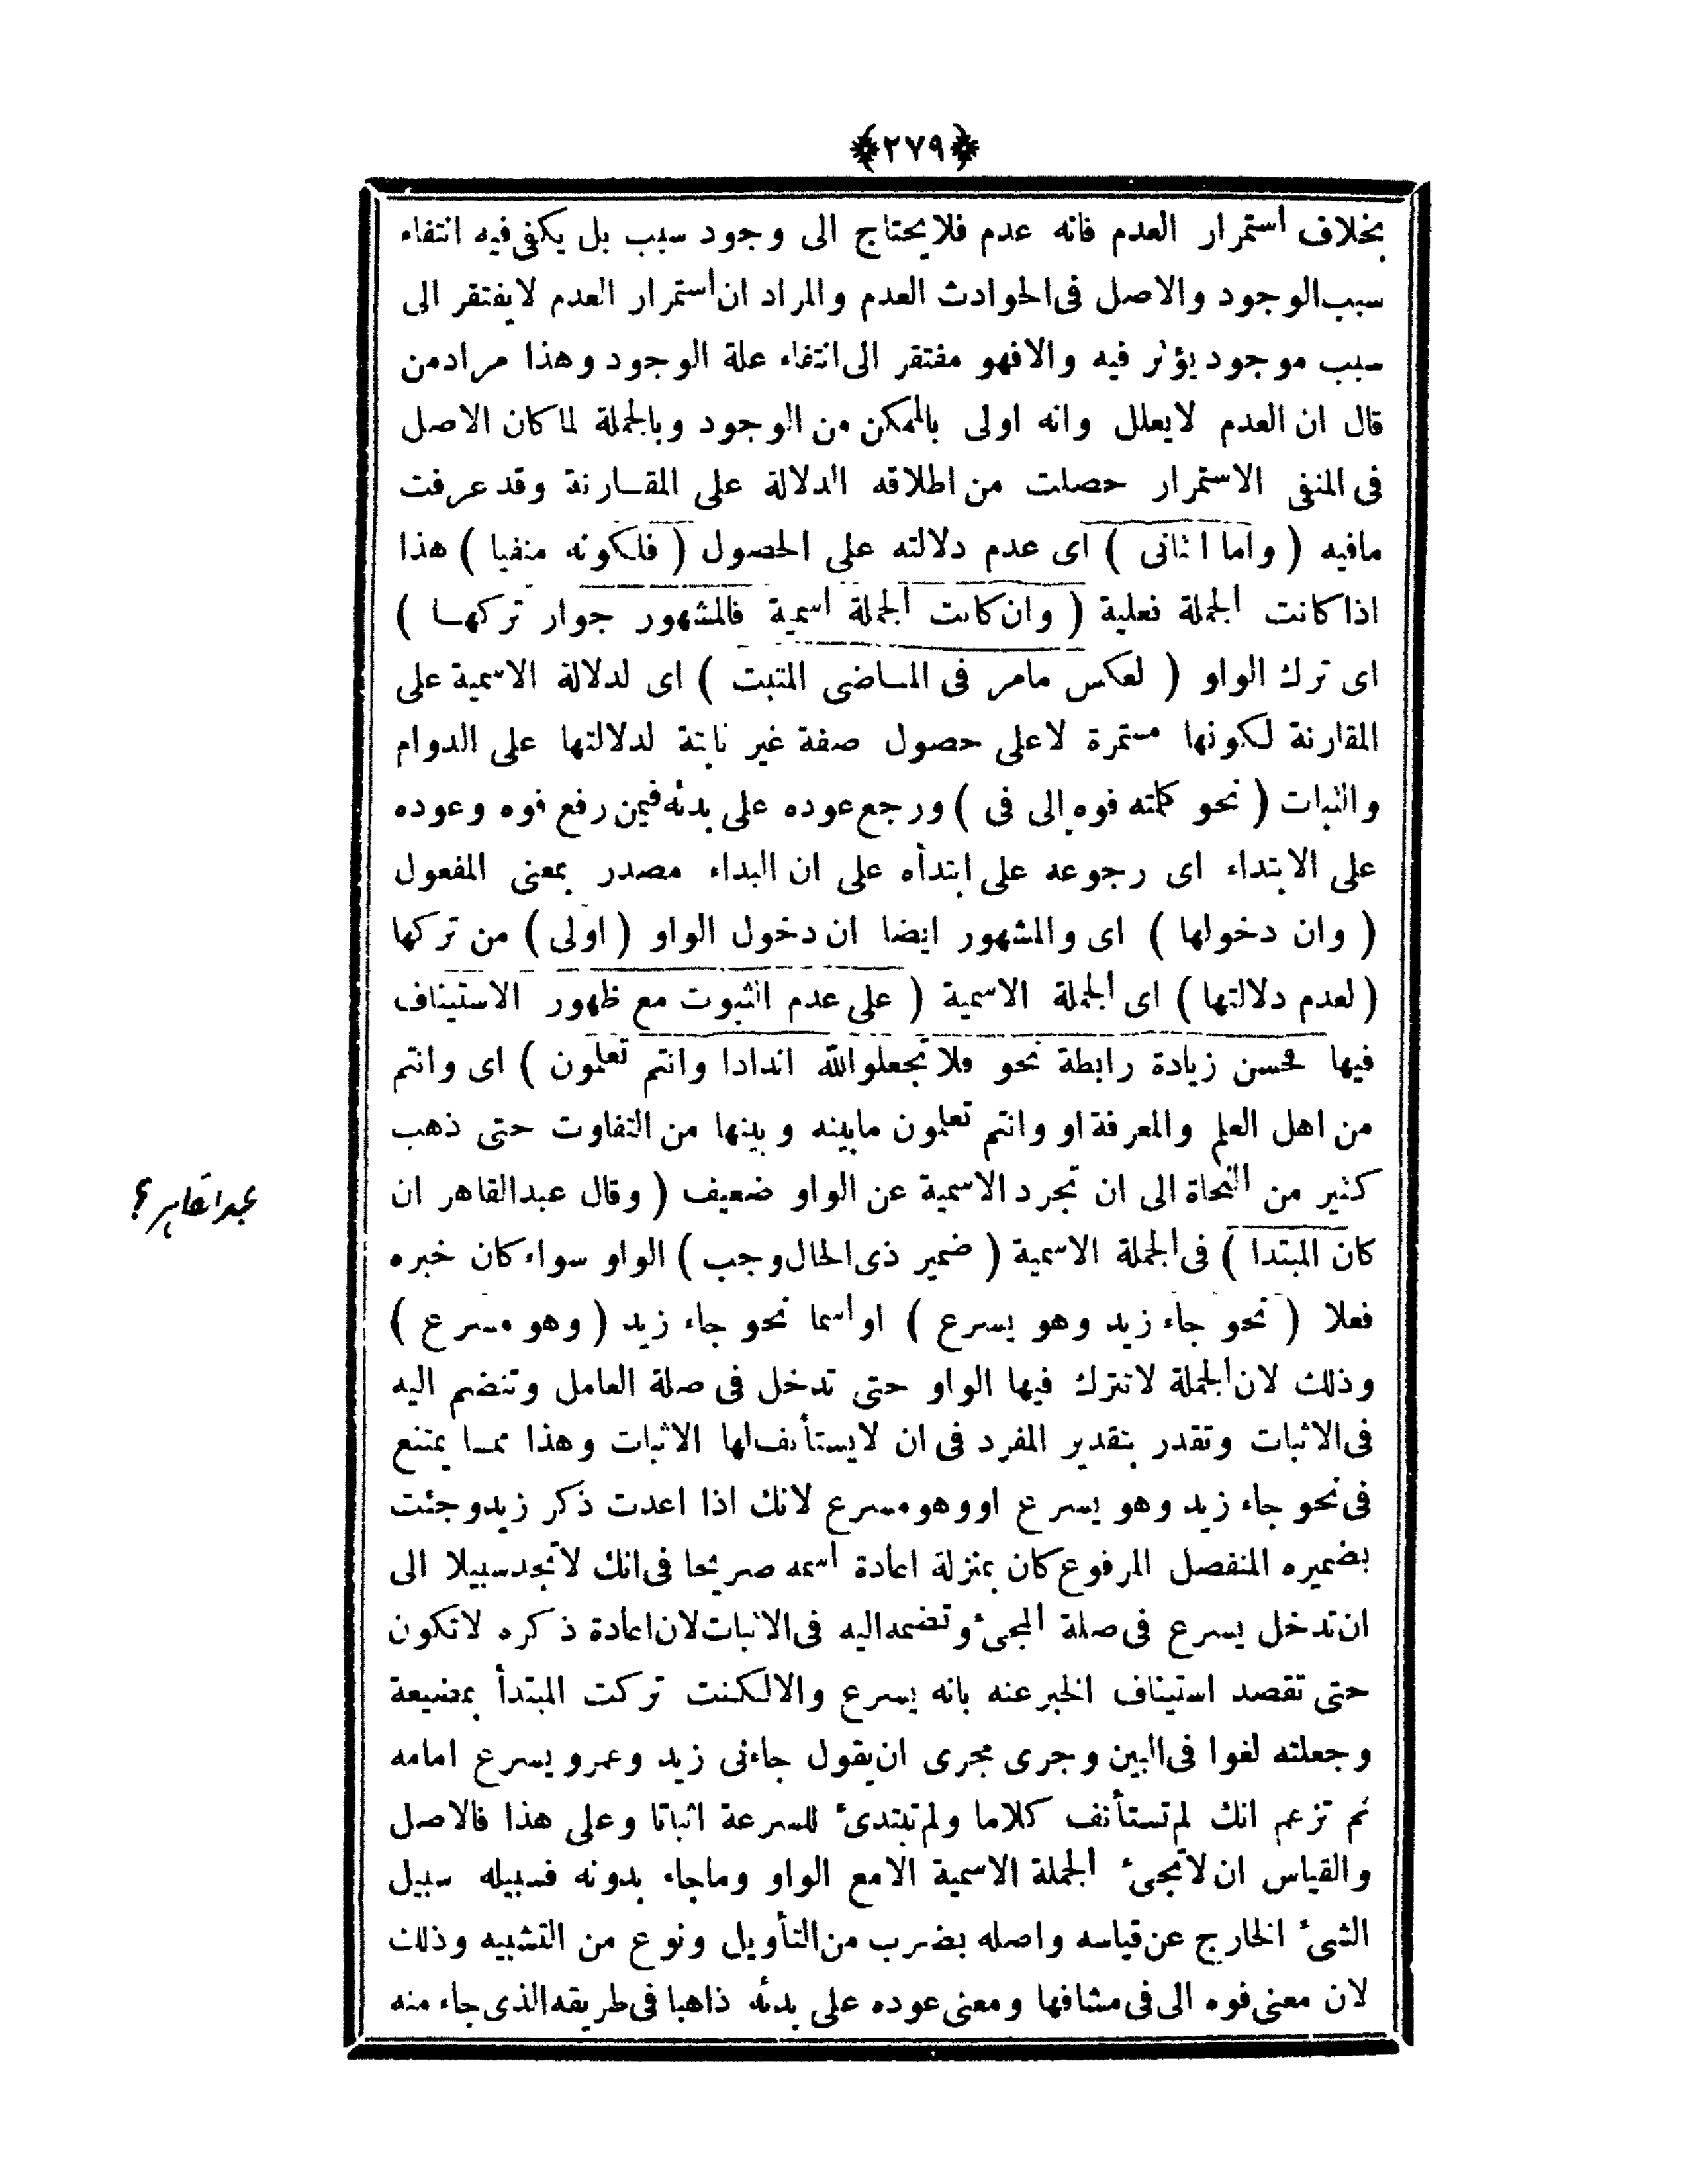 ﴿٢٧٩﴾
بخلاف استمرار العدم فانه عدم فلا يحتاج الى وجود سبب بل يكفى فيه انتفاء
سبب الوجود والاصل فى الحوادث العدم والمراد ان استمرار العدم لا يفتقر الى
سبب موجود يؤثر فيه والا فهو مفتقر الى انتفاء علة الوجود وهذا مراد من
قال ان العدم لا يعلل وانه اولى بالممكن من الوجود وبالجملة لما كان الاصل
فى المنفى الاستمرار حصلت من اطلاقه الدلالة على المقارنة وقد عرفت
مافيه ( واما الثانى ) اى عدم دلالته على الحصول ( فلكونه منفيا ) هذا
اذا كانت الجملة فعلية ( وان كانت الجملة اسمية فالمشهور جواز تركها )
اى ترك الواو ( لعكس مامر فى الماضى المثبت ) اى لدلالة الاسمية على
المقارنة لكونها مستمرة لا على حصول صفة غير ثابتة لدلالتها على الدوام
والثبات ( نحو كلمته فوه الى فى ) ورجع عوده على بدئه فيمن رفع فوه وعوده
على الابتداء اى رجوعه على ابتدأه على ان البداء مصدر بمعنى المفعول
( وان دخولها ) اى والمشهور ايضا ان دخول الواو ( اولى ) من تركها
( لعدم دلالتها ) اى الجملة الاسمية ( على عدم الثبوت مع ظهور الاستيناف
فيها فحسن زيادة رابطة نحو فلا تجعلوالله اندادا وانتم تعلمون ) اى وانتم
من اهل العلم والمعرفة او وانتم تعلمون مابينه وبينها من التفاوت حتى ذهب
كثير من النحاة الى ان تجرد الاسمية عن الواو ضعيف ( وقال عبدالقاهر ان
عبدالقاهر؟
كان المبتدا ) فى الجملة الاسمية ( ضمير ذى الحال وجب ) الواو سواء كان خبره
فعلا ( نحو جاء زيد وهو يسرع ) او اسما نحو جاء زيد ( وهو مسرع )
وذلك لان الجملة لا تترك فيها الواو حتى تدخل فى صلة العامل وتنضم اليه
فى الاثبات وتقدر بتقدير المفرد فى ان لا يستأنف لها الاثبات وهذا مما يمتنع
فى نحو جاء زيد وهو يسرع او وهو مسرع لانك اذا اعدت ذكر زيد وجئت
بضميره المنفصل المرفوع كان بمنزلة اعادة اسمه صريحا فى انك لا تجد سبيلا الى
ان تدخل يسرع فى صلة المجئ وتضمه اليه فى الاثبات لان اعادة ذكره لا تكون
حتى تقصد استيناف الخبر عنه بانه يسرع والا لكنت تركت المبتدأ بمضيعة
وجعلته لغوا فى البين وجرى مجرى ان يقول جاءنى زيد وعمرو يسرع امامه
ثم تزعم انك لم تستأنف كلاما ولم تبتدئ للسرعة اثباتا وعلى هذا فالاصل
والقياس ان لا تجئ الجملة الاسمية الا مع الواو وماجاء بدونه فسبيله سبيل
الشئ الخارج عن قياسه واصله بضرب من التأويل ونوع من التشبيه وذلك
لان معنى فوه الى فى مشافها ومعنى عوده على بدئه ذاهبا فى طريقه الذى جاء منه